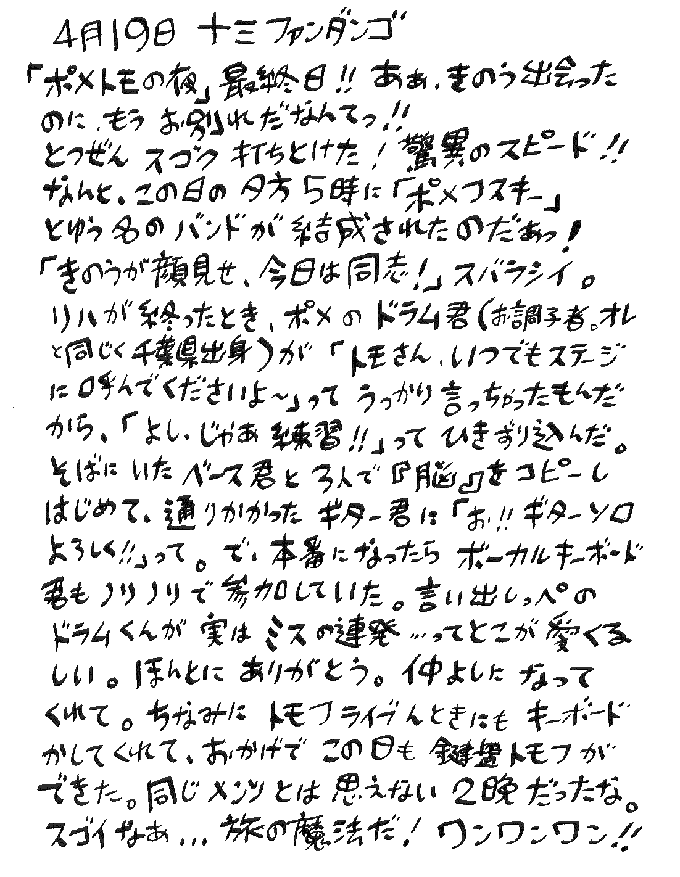 4月19日 十三ファンダンゴ
「ポメトモの夜」最終日!! あぁ、きのう出会った
のに、もう お別れだなんてっ!!
とつぜん スゴク 打ちとけた! 驚異のスピード!!
なんと、この日の 夕方 5時に「ポメコスキー」
とゆう名の バンドが 結成されたのだぁっ!
「きのうが顔見せ、今日は同志!」スバラシイ。
リハが終ったとき、ポメの ドラム君(お調子者。オレ
と同じく 千葉県出身)が「トモさん、いつでもステージ
に呼んでくださいよ〜」って うっかり言っちゃったもんだ
から、「よし、じゃあ 練習!!」って ひきずり込んだ。
そばにいた ベース君と 3人で『脳』をコピーし
はじめて、通りかかった ギター君に「お!! ギターソロ
よろしく!!」って。で、本番になったら ボーカルキーボード
君も ノリノリで 参加していた。言い出しっぺの
ドラムくんが 実は ミスの連発…ってとこが 愛くる
しい。ほんとに ありがとう。仲よしに なって
くれて。ちなみに トモフライブんときにも キーボード
かしてくれて、おかげで この日も 鍵盤トモフが
できた。同じメンツとは 思えない 2晩だったな。
スゴイなぁ... 旅の魔法だ! ワンワンワン!!